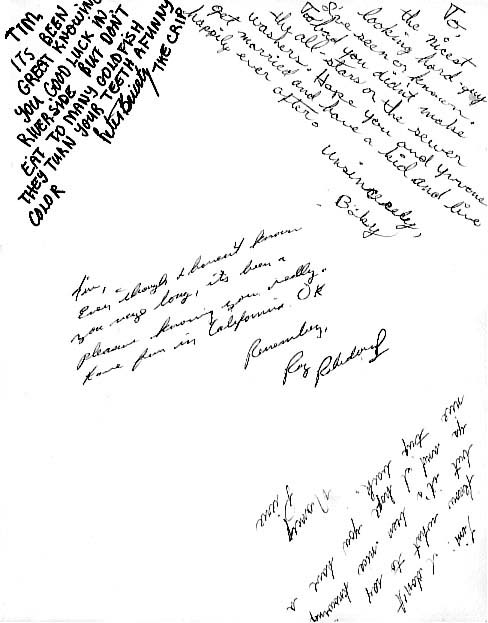 TIM,
ITS BEEN
GREAT KNOWING
YOU GOOD LUCK IN
RIVERSIDE BUT DON'T
EAT TO MANY GOLDFISH
THEY TURN YOUR TEETH A FUNNY
COLOR
THE CHIP
To,
the nicest
looking hard guy
I've seen or known.
To bad you didn't make
the all stars or the sewer
washers. Hope you and Yvonne
get married and have a kid and live
happily ever after.
Unsincerely,
Bixby
Tim,
Even though I haven't known
you very long, it's been a
pleasure knowing you really.
Have fun in California. OK
Remember,
Roy
Tim
I don't
know what to say
but it's been nice knowing
ya and I hope you have a
nice trip back.
Nancy